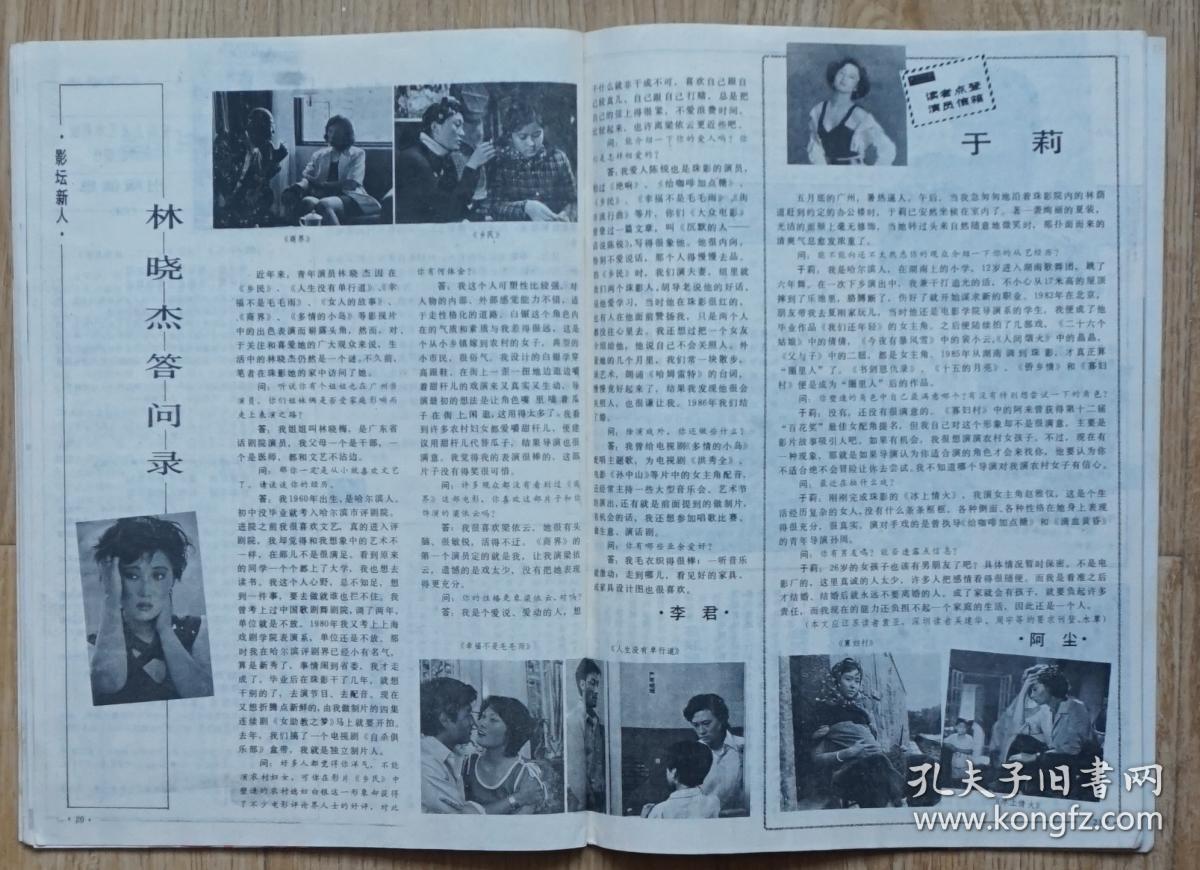 ·影坛新人·
林晓杰答问录
《商界》
《乡民》
近年来，青年演员林晓杰因在
《乡民》、《人生没有单行道》、《幸
福不是毛毛雨》、《女人的故事》、
《商界》、《多情的小岛》等影视片
中的出色表演而崭露头角，然而，对
于关注和喜爱她的广大观众来说，生
活中的林晓杰仍然是一个谜，不久前，
笔者在珠影她的家中访问了她。
问：听说你有个姐姐也在广州当
演员，你们姐妹俩是否受家庭影响而
走上表演之路？
答：我姐姐叫林晓梅，是广东省
话剧院演员，我父母一个是干部，一
个是医师，都和文艺不沾边。
问：那你一定是从小就喜欢文艺
了。请谈谈你的经历。
答：我1960年出生，是哈尔滨人。
初中没毕业就考入哈尔滨市评剧院。
进院之前我很喜欢文艺，真的进入评
剧院，我却觉得和我想象中的艺术不
一样，在那儿不是很满足。看到原来
的同学一个个都上了大学，我也想去
读书。我这个人心野，总不知足，想
到一件事，要去做就谁也拦不住。我
曾考上过中国歌剧舞剧院，调了两年，
单位就是不放。1980年我又考上上海
戏剧学院表演系，单位还是不放。那
时我在哈尔滨评剧界已经小有名气，
算是新秀了。事情闹到省委，我才走
成了。毕业后在珠影干了几年，就想
干别的了，去演节目、去配音。现在
又想折腾点新鲜的，由我做制片的四集
连续剧《女助教之梦》马上就要开拍。
去年，我们搞了一个电视剧《自杀俱
乐部》盒带，我就是独立制片人。
问：好多人都觉得你洋气，不能
演农村妇女，可你在影片《乡民》中
塑造的农村媳妇白银这一形象却获得
了不少电影评论界人士的好评，对此
·20·
你有何体会？
答：我这个人可塑性比较强，对
人物的内部、外部感觉能力不错，适
于走性格化的道路。白银这个角色内
在的气质和素质与我差得很远，这是
个从小乡镇嫁到农村的女子，典型的
小市民，很俗气。我设计的白银学穿
高跟鞋，在街上一歪一扭地边逛边嚼
着甜秆儿的戏演来又真实又生动。导
演最初的想法是让角色嘴里嗑着瓜
子在街上闲逛，这用得太多了。我看
到许多农村妇女都爱嚼甜秆儿，便建
议用甜秆儿代替瓜子，结果导演也很
满意。我觉得我的表演很棒的，这部
片子没有得奖很可惜。
问：许多观众都没有看到过《商
界》这部电影，你喜欢这部片子和你
饰演的梁依云吗？
答：我很喜欢梁依云。她很有头
脑、很敏锐，活得不迂。《商界》的
第一个演员定的就是我，让我演梁依
云，遗憾的是戏太少，没有把她表现
得更充分。
问：你的性格是象梁依云，对吗？
答：我是个爱说、爱动的人，想
《幸福不是毛毛雨》
干什么就非干成不可，喜欢自己跟自
己较真儿，自己跟自己打赌，总是把
自己的弦上得很紧，不爱浪费时间。
比较起来，也许离梁依云更近些吧。
问：能介绍一下你的爱人吗？你
们是怎样相爱的？
答：我爱人陈锐也是珠影的演员，
拍过《绝响》、《给咖啡加点糖》、
《乡民》、《幸福不是毛毛雨》、《街
市流行曲》等片，你们《大众电影》
曾登过一篇文章，叫《沉默的人——
话说陈锐》，写得很象他。他很内向，
特别不爱说话，那个人得慢慢去品。
拍《乡民》时，我们演夫妻，组里就
我们两个珠影人，胡导老说他的好话，
说他爱学习，当时他在珠影很红的，
也有人在他面前赞扬我，只是两个人
都没往心里去。我还想过把一个女友
介绍给他，他说自己不会关照人。外
景地的几个月里，我们常一块散步。
谈艺术，朗诵《哈姆雷特》的台词，
慢慢竟好起来了，结果我发现他很会
关照人，也很谦让我。1986年我们结
了婚。
问：除演戏外，你还做些什么？
答：我曾给电视剧《多情的小岛》
唱主题歌，为电视剧《洪秀全》、
电影《孙中山》等片中的女主角配音，
还经常主持一些大型音乐会、艺术节
的演出，还有就是前面提到的做制片，
有机会的话，我还想参加唱歌比赛、
做生意、演话剧。
问：你有哪些业余爱好？
答：我毛衣织得很棒；一听音乐
就激动；走到哪儿，看见好的家具，
或家具设计图也很喜欢。
·李君·
《人生没有单行道》
读者点登
演员信箱
于莉
五月底的广州，暑热逼人。午后，当我急匆匆地沿着珠影院内的林荫
道赶到约定的办公楼时，于莉已安然坐候在室内了。著一袭绚丽的夏装，
光洁的面颊上毫无修饰，当她转过头来自然随意地微笑时，那扑面而来的
清爽气息愈发浓重了。
问：能不能向还不太熟悉你的观众介绍一下你的从艺经历？
于莉：我是哈尔滨人，在湖南上的小学，12岁进入湖南歌舞团，跳了
六年舞，在一次下乡演出中，我兼干打追光的活，不小心从17米高的屋顶
摔到了乐池里，胳膊断了，伤好了就开始谋求新的职业。1982年在北京，
朋友带我去夏刚家玩儿，当时他还是电影学院导演系的学生，我便成了他
毕业作品《我们还年轻》的女主角。之后便陆续拍了几部戏，《二十六个
姑娘》中的倩倩，《今夜有暴风雪》中的裴小云，《人间烟火》中的晶晶，
《父与子》中的二妞，都是女主角。1985年从湖南调到珠影，才真正算
“圈里人”了。《书剑恩仇录》、《十五的月亮》、《侨乡情》和《寡妇
村》便是成为“圈里人”后的作品。
问：你塑造的角色中自己最满意哪个？有没有特别想尝试一下的角色？
于莉：没有，还没有很满意的。《寡妇村》中的阿来曾获得第十二届
“百花奖”最佳女配角提名，但我自己对这个形象却不是很满意，主要是
影片故事吸引人吧。如果有机会，我很想演演农村女孩子，不过，现在有
一种现象，那就是如果导演认为你适合演的角色才会来找你，他要认为你
不适合绝不会冒险让你去尝试，我不知道哪个导演对我演农村女子有信心。
问：最近在拍什么戏？
于莉：刚刚完成珠影的《冰上情火》，我演女主角赵燃仪，这是个生
活经历复杂的女人，没有什么条条框框，各种侧面、各种性格在她身上表现
得很充分，很真实。演对手戏的是曾执导《给咖啡加点糖》和《滴血黄昏》
的青年导演孙周。
问：你有男友吗？能否透露点信息？
于莉：26岁的女孩子也该有男朋友了吧？具体情况暂时保密。不是电
影厂的，这里真诚的人太少，许多人把感情看得很随便，而我是看准之后
才结婚，结婚后就永远不要离婚的人，成了家就会有孩子，就要负起许多
责任，而我现在的能力还负担不起一个家庭的生活，因此还是一个人。
·阿尘·
《寡妇村》
《冰上情火》
孔夫子旧書网
www.kongfz.com